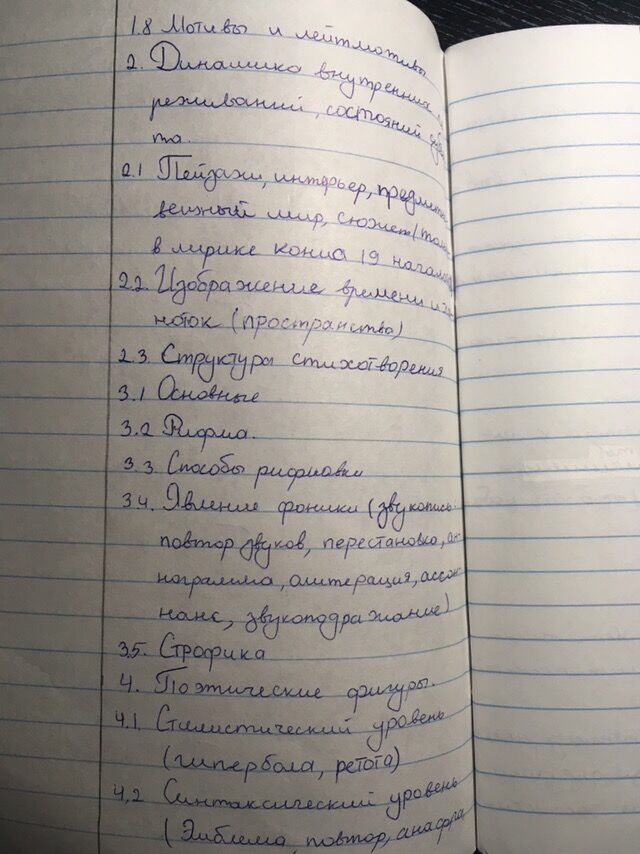 1.8 Мотивы и лейтмотивы
2. Динамика внутренних
реживаний, состояний
та.
2.1 Пейзажи, интерьер, предметно
вещный мир, сюжет
в лирике конца 19 начала
2.2. Изображение времени и
ноток (пространства)
2.3. Структура стихотворения
3.1 Основные
3.2 Рифма.
3.3. Способы рифмовки
3.4. Явление фоники (звукопись:
повтор звуков, перестановка, ан-
нограмма, алитерация, ассо-
нанс, звукоподражание)
3.5. Строфика
4. Поэтические фигуры.
4.1. Стилистический уровень
(гипербола, ретота)
4.2 Синтаксический уровень
(Эмблема, повтор, анафра